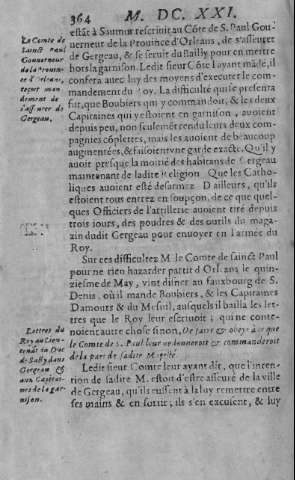 364 M. DC. XXI.
estãt à Saumur rescriuit au Côte de S. Paul Gou-
uerneur de la Prouince d'Orleans, de s'asseurer
de Gergeau, & se seruit du Bailly pour en mettre
hors la garnison. Ledit sieur Côte l'ayant mãdé, il
confera auec luy des moyens d'executer le com-
mandement du Roy. La difficulté qui se presenta
fut, que Boubiers qui y commandoit, & les deux
Capitaines qui y estoient en garnison, auoient
depuis peu, non seulemẽt rendu leurs deux com-
pagnies cõplettes, mais les auoient de beaucoup
augmentées, & faisoient vne garde exacte. Qu'il y
auoit presque la moitié des habitans de Gergeau
maintenant de ladite Religion. Que les Catho-
liques auoient esté desarmez. D'ailleurs, qu'ils
estoient tous entrez en soupçon, de ce que quel-
ques Officiers de l'artillerie auoient tiré depuis
trois iours, des poudres & des outils du maga-
zin dudit Gergeau pour enuoyer en l'armée du
Roy.
Sur ces difficultez M. le Comte de sainct Paul
pour ne rien hazarder partit d'Orleans le quin-
ziesme de May, vint disner au fauxbourg de S.
Denis, où il manda Boubiers, & les Capitaines
Damours & du Mesnil, ausquels il bailla les let-
tres que le Roy leur escriuoit, qui ne conte-
noient autre chose sinon, De faire & obeyr à ce que
le Comte de S. Paul leur ordonneroit & commanderoit
de la part de sadite Majesté.
Ledit sieur Comte leur ayant dit, que l'inten-
tion de sadite M. estoit d'estre asseuré de la ville
de Gergeau, qu'ils eussent à la luy remettre entre
ses mains & en sortir; ils s'en excusent, & luy
Le Comte de
Sainct Paul
Gouuerneur
de la Prouin-
ce d'Orleans,
reçoit man-
dement de
s'asseurer de
Gergeau.
Lettres du
Roy au Lieu-
tenãt du Duc
de Sully dans
Gergeau &
aux Capitai-
nes de la gar-
nison.